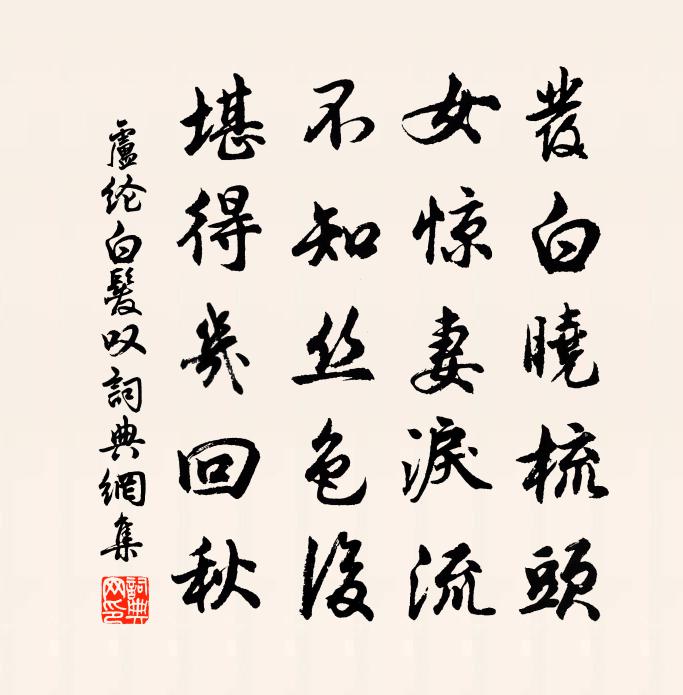 發白曉梳頭
女惊妻淚流
不知丝色後
堪得幾回秋
盧纶白髮叹詞典網集
詞典网印